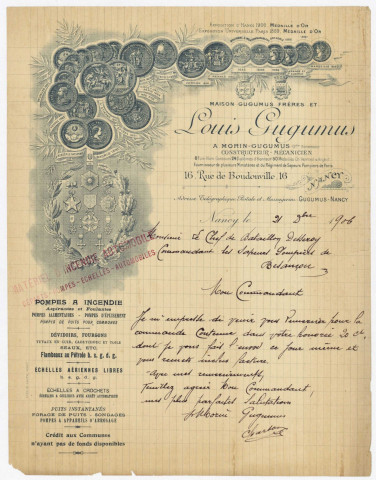 EXPOSITION D'HANOI 1902 MÉDAILLE D'OR
EXPOSITION UNIVERSELLE PARIS 1889, MÉDAILLE D'OR
MAISON GUGUMUS FRÈRES ET
Louis Gugumus
A MORIN-GUGUMUS
CONSTRUCTEUR-MÉCANICIEN
16, Rue de Boudonville, 16
NANCY
Adresse Télégraphique, Postale et Messageries: GUGUMUS-NANCY
Nancy, le 21 Xbre 1906
Monsieur Le Chef de Bataillon
Commandant les Sapeurs Pompiers de
Besançon
INCENDIE AUTOMOBILE
POMPES-ÉCHELLES-AUTOMOBILES
POMPES A INCENDIE
Aspirantes et Foulantes
POMPES ALIMENTAIRES - POMPES D'ÉPUISEMENT
POMPES DE PUITS POUR COMMUNES
DÉVIDOIRS, FOURGONS
TUYAUX EN CUIR, CAOUTCHOUC ET TOILE
SEAUX, ETC.
Flambeaux au Pétrole b. s. g. d. g.
ÉCHELLES AÉRIENNES LIBRES
b. s. g. d. g.
ÉCHELLES A CROCHETS
PUITS INSTANTANÉS
FORAGE DE PUITS - SONDAGES
POMPES & APPAREILS D'ARROSAGE
Crédit aux Communes
n'ayant pas de fonds disponibles
Mon Commandant
Je m'empresse de venir vous remercier pour la
commande contenue dans votre honorée 20 ct
dont je vous fais l'envoi ce jour même et
vous remets inclus facture
Avec mes remerciements,
Veuillez agréer Mon Commandant,
mes plus parfaites salutations
Morin Gugumus